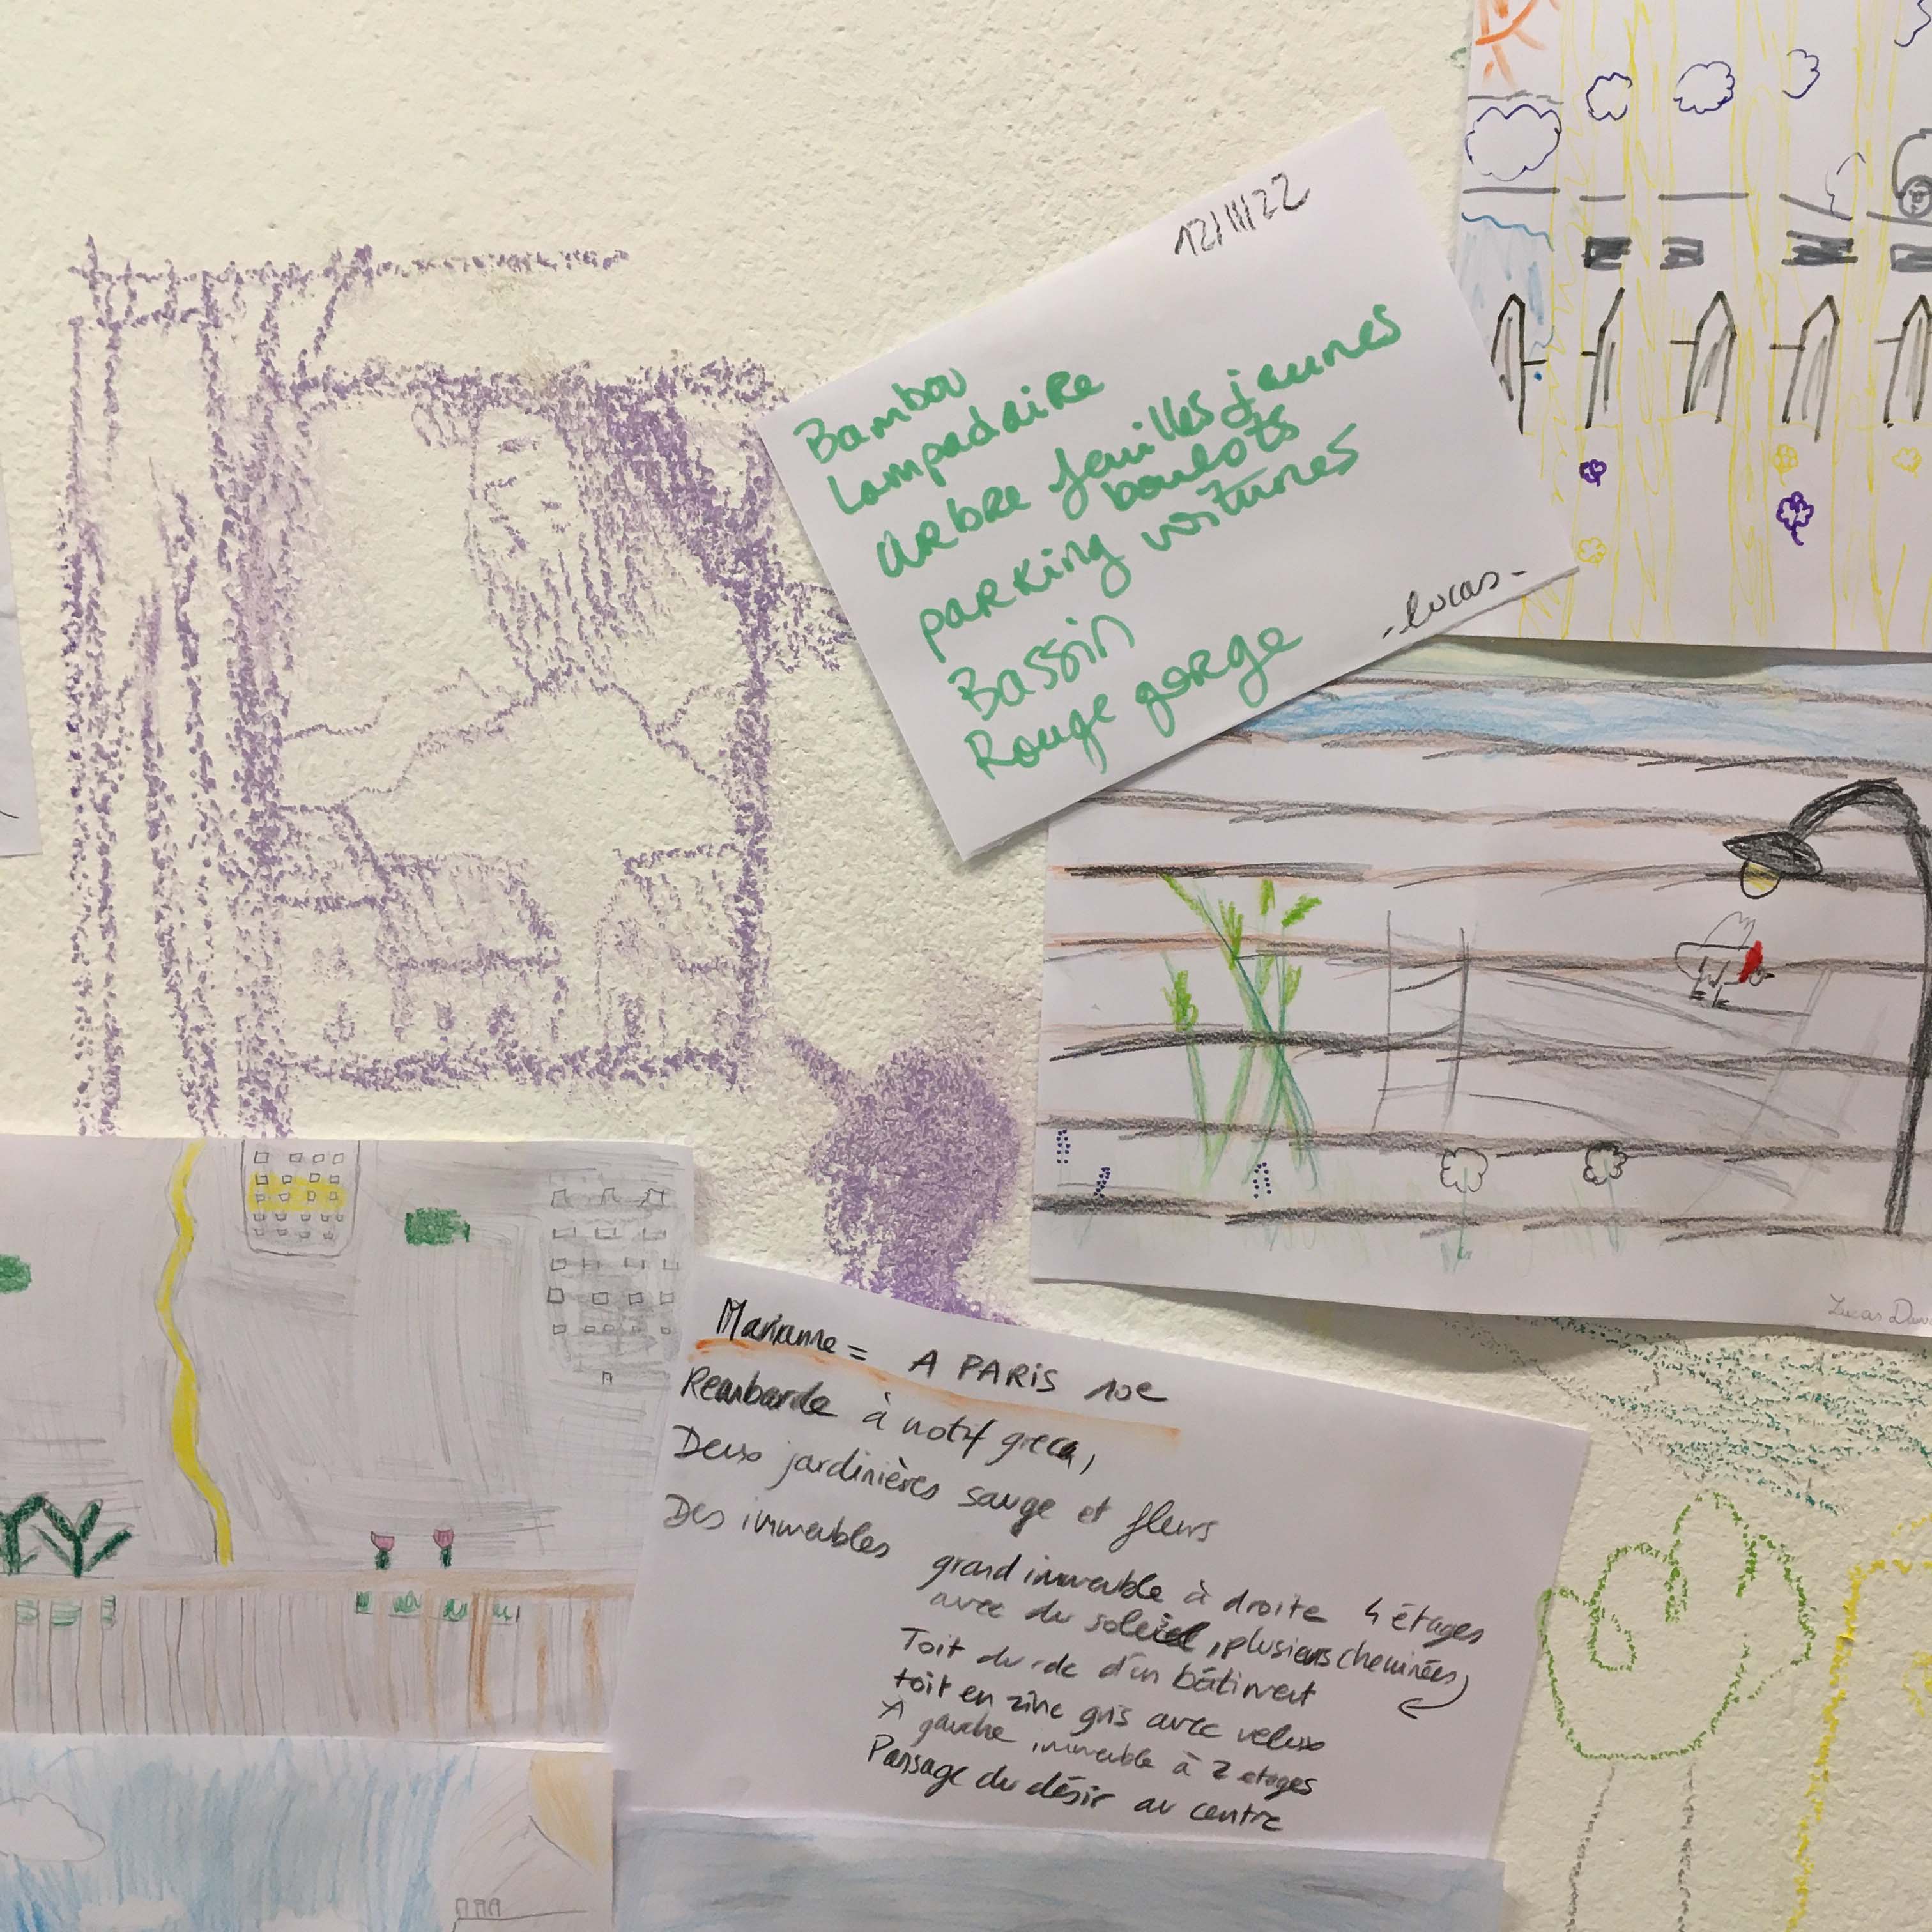 12/11/22
Bambou
Lampadaire
Arbre feuilles jaunes
boulots
parking voitures
Bassin
Rouge gorge
-lucas-
Lucas
Marianne = A PARIS 10e
Rembarde à motif grecq,
Deux jardinières sauge et fleurs
Des immeubles
grand immeuble à droite 4 étages
avec du soleil, plusieurs cheminées
Toit du rdc d'un bâtiment
toit en zinc gris avec velux
A gauche immeuble à 2 etages
Passage du désir au centre